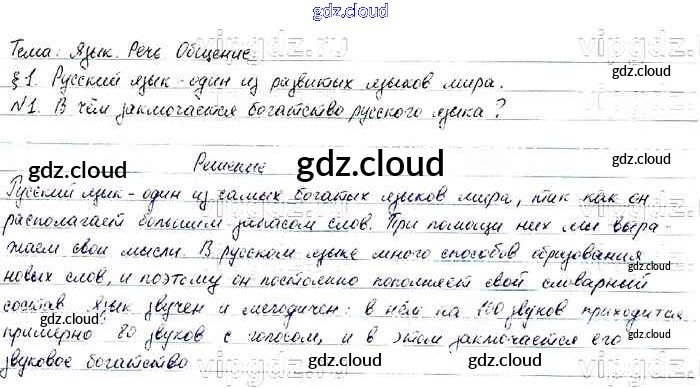 gdz.cloud
Тема: Язык. Речь. Общение.
vipgdz.ru
gdz.cloud
§1. Русский язык - один из развитых языков мира.
№1. В чём заключается богатство русского языка?
gdz.cloud
gdz.cloud
Решение
gdz.cloud
gdz.cloud
Русский язык - один из самых богатых языков мира, так как он
располагает большим запасом слов. При помощи них мы выра-
vipgdz.ru
жаем свои мысли. В русском языке много способов образования
gdz.cloud
новых слов, и поэтому он постоянно пополняет свой словарный
состав. Язык звучен и мелодичен: в нём на 100 звуков приходится
примерно 80 звуков с голосом, и в этом заключается его
звуковое богатство
gdz.cloud
gdz.cloud